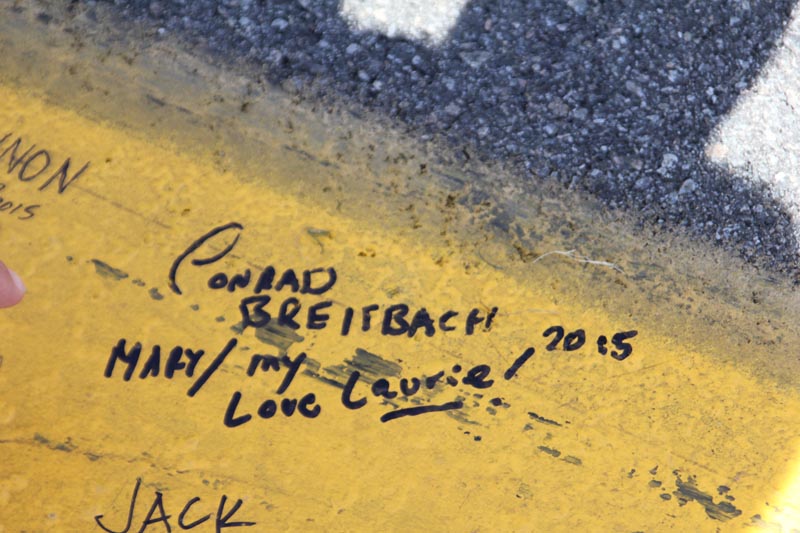 NON
2015
CONRAD
BREITBACH
MARY/my 2015
Love Laurie/
JACK